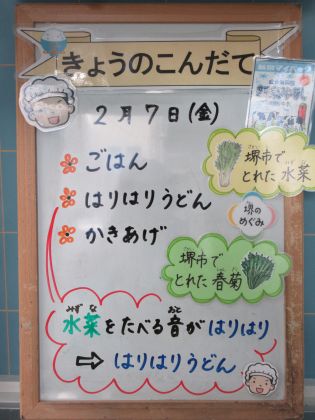 きょうのこんだて
2月7日(金)
ごはん
はりはりうどん
かきあげ
堺市で
とれた水菜
堺の
めぐみ
堺市で
とれた春菊
みず な
おと
水菜をたべる音がはりはり
⇨ はりはりうどん